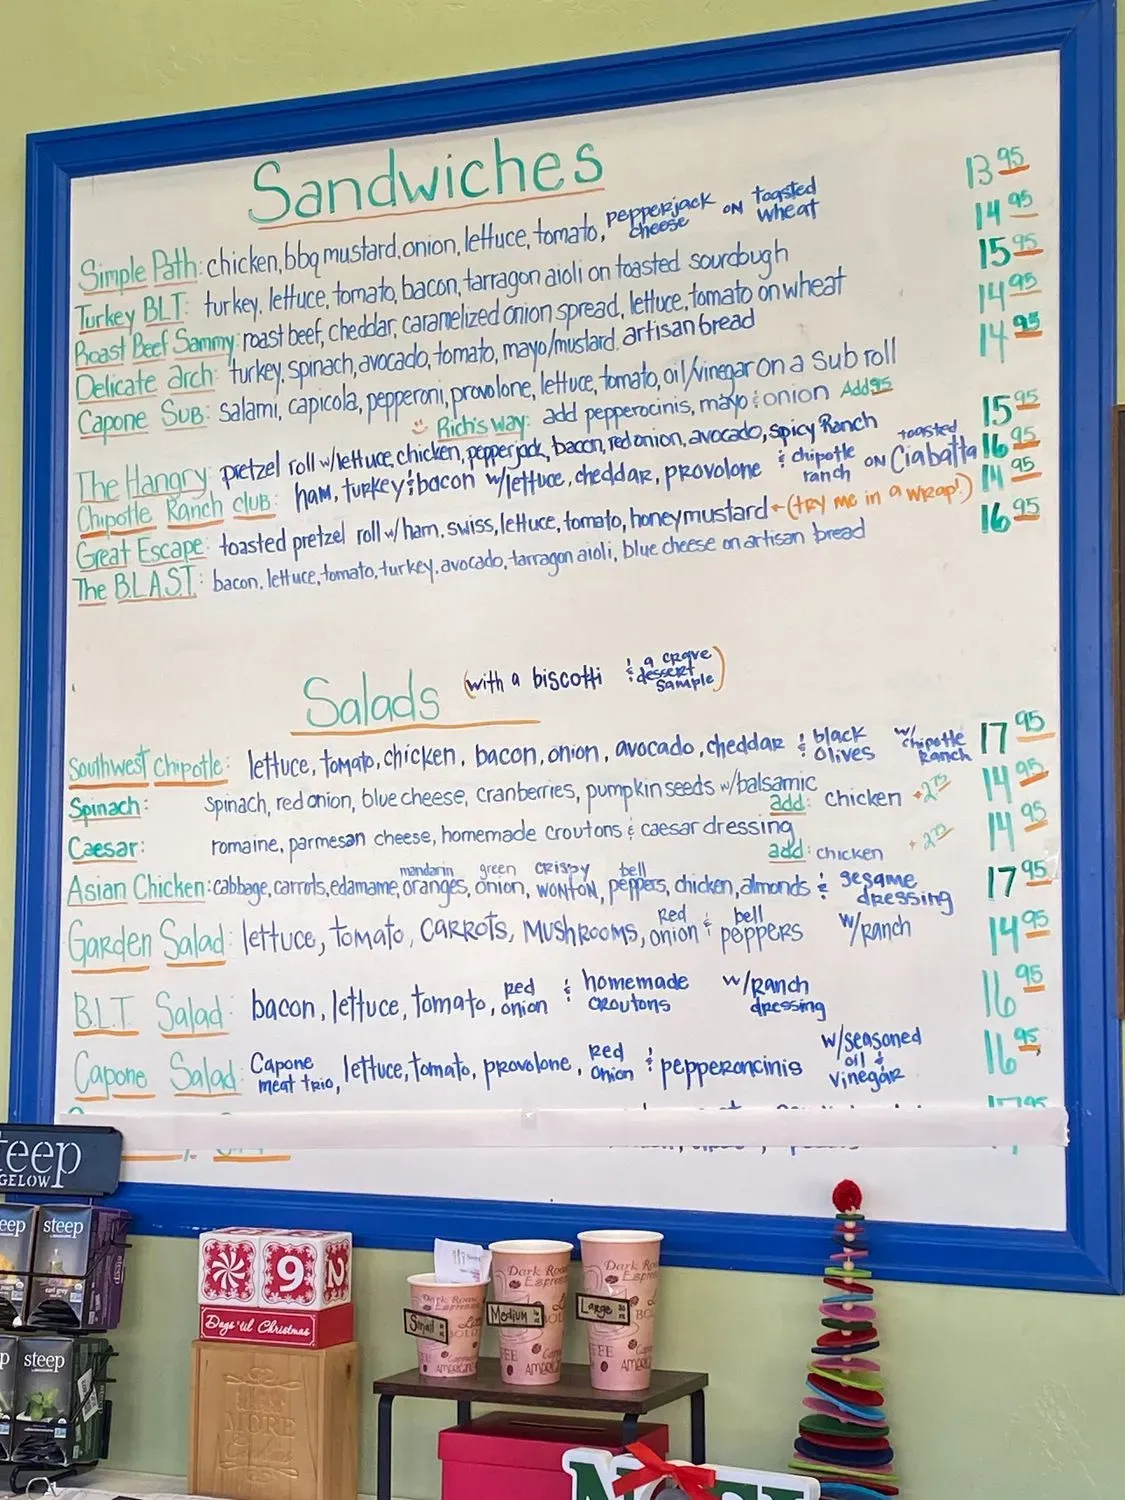 Sandwiches
Simple Path: chicken, bbq mustard, onion, lettuce, tomato, pepperjack cheese ON toasted wheat 13 95
Turkey BLT: turkey, lettuce, tomato, bacon, tarragon aioli on toasted sourdough 14 95
Roast Beef Sammy: roast beef, cheddar, caramelized onion spread, lettuce, tomato on wheat 15 95
Delicate arch: turkey, spinach, avocado, tomato, mayo/mustard, artisan bread 14 95
Capone Sub: salami, capicola, pepperoni, provolone, lettuce, tomato, oil/vinegar on a Sub roll 14 95
Rich's way: add pepperocinis, mayo & onion Add 95
The Hangry: pretzel roll w/lettuce, chicken, pepper jack, bacon, red onion, avocado, spicy Ranch 15 95
Chipotle Ranch club: ham, turkey & bacon w/lettuce, cheddar, provolone & chipotle ranch ON toasted Ciabatta 16 95
Great Escape: toasted pretzel roll w/ ham, swiss, lettuce, tomato, honey mustard - (try me in a wrap!) 14 95
The B.L.A.S.T.: bacon, lettuce, tomato, turkey, avocado, tarragon aioli, blue cheese on artisan bread 16 95
Salads (with a biscotti & a crave dessert sample)
Southwest Chipotle: lettuce, tomato, chicken, bacon, onion, avocado, cheddar & black olives w/ chipotle Ranch 17 95
Spinach: Spinach, red onion, blue cheese, cranberries, pumpkin seeds w/balsamic 14 95
add: chicken
Caesar: romaine, parmesan cheese, homemade croutons & caesar dressing 14 95
add: chicken
Asian Chicken: cabbage, carrots, edamame, mandarin oranges, green onion, crispy wonton, bell peppers, chicken, almonds & sesame dressing 17 95
Garden Salad: lettuce, tomato, carrots, mushrooms, red onion & bell peppers w/ranch 14 95
B.L.T. Salad: bacon, lettuce, tomato, red onion & homemade croutons w/Ranch dressing 16 95
Capone Salad: Capone meat trio, lettuce, tomato, provolone, red onion & pepperoncinis w/seasoned oil & vinegar 16 95
17 95
teep
GELOW
eep
steep
earl grey
9
2
Days 'til Christmas
p
steep
MORE
Dark Roast
Espresso
Small
Dark Roast
Espresso
Medium
Dark Roas
Espres
Large